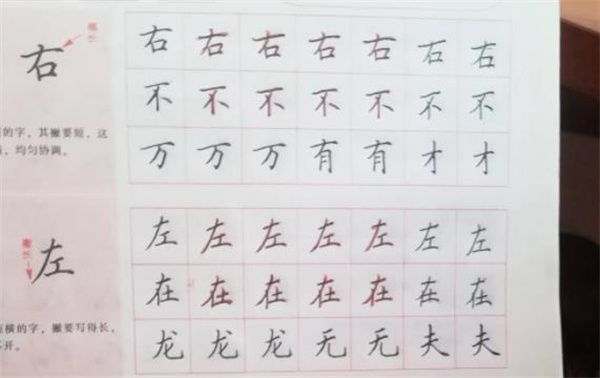 横长
右
的字，其撇要短，这
，均匀协调。
右右右右右右右
不不不不不不不
万万万有有才才
撇长
左
横的字，撇要写得长，
开。
左左左左左左左
在在在在在在在
龙龙龙无无夫夫